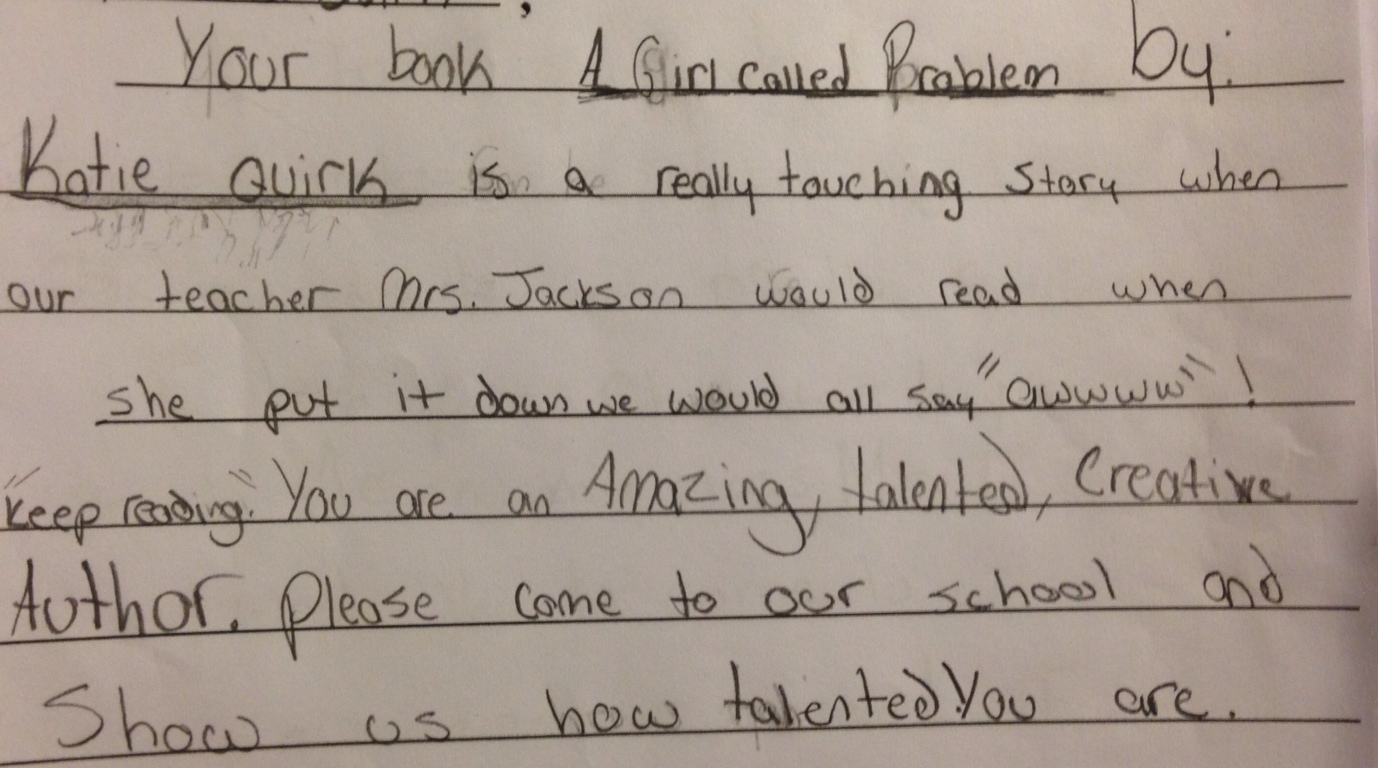 Your book A Girl Called Problem by:
Katie Quirk is a really touching story when
our teacher Mrs. Jackson would read when
she put it down we would all say "awwww"!
"Keep reading". You are an Amazing, talented, Creative
Author. Please come to our school and
Show us how talented You are.